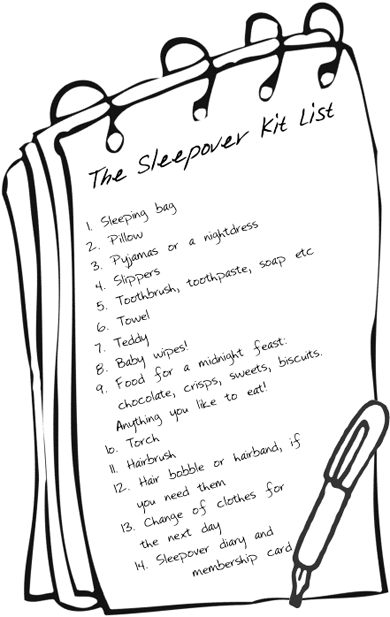 The Sleepover Kit List
1. Sleeping bag
2. Pillow
3. Pyjamas or a nightdress
4. Slippers
5. Toothbrush, toothpaste, soap etc
6. Towel
7. Teddy
8. Baby wipes!
9. Food for a midnight feast:
chocolate, crisps, sweets, biscuits.
Anything you like to eat!
10. Torch
11. Hairbrush
12. Hair bobble or hairband, if
you need them
13. Change of clothes for
the next day
14. Sleepover diary and
membership card